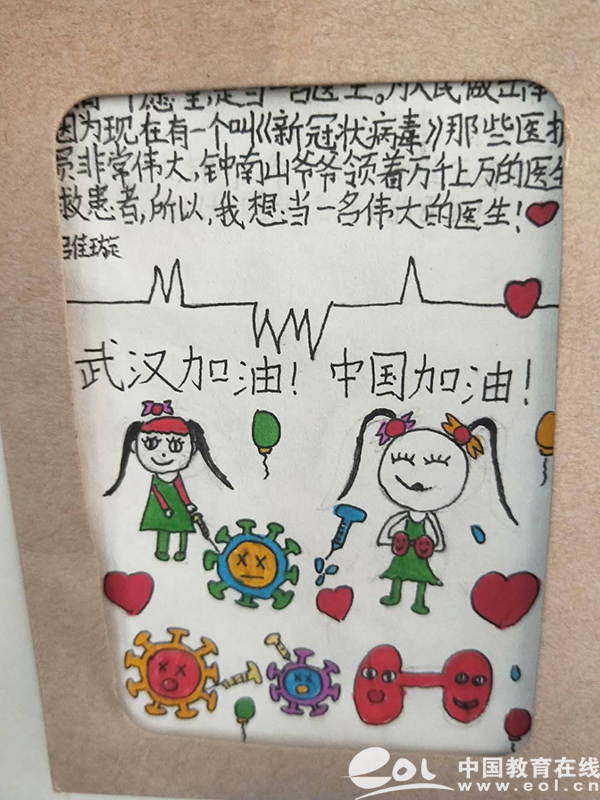 愿望,是当一名医生。为人民做出
因为现在有一个叫《新冠状病毒》那些医护
员非常伟大,钟南山爷爷领着万千上万的医生
救患者,所以,我想当一名伟大的医生!
佳璇
武汉加油! 中国加油!
eol 中国教育在线
www.eol.cn